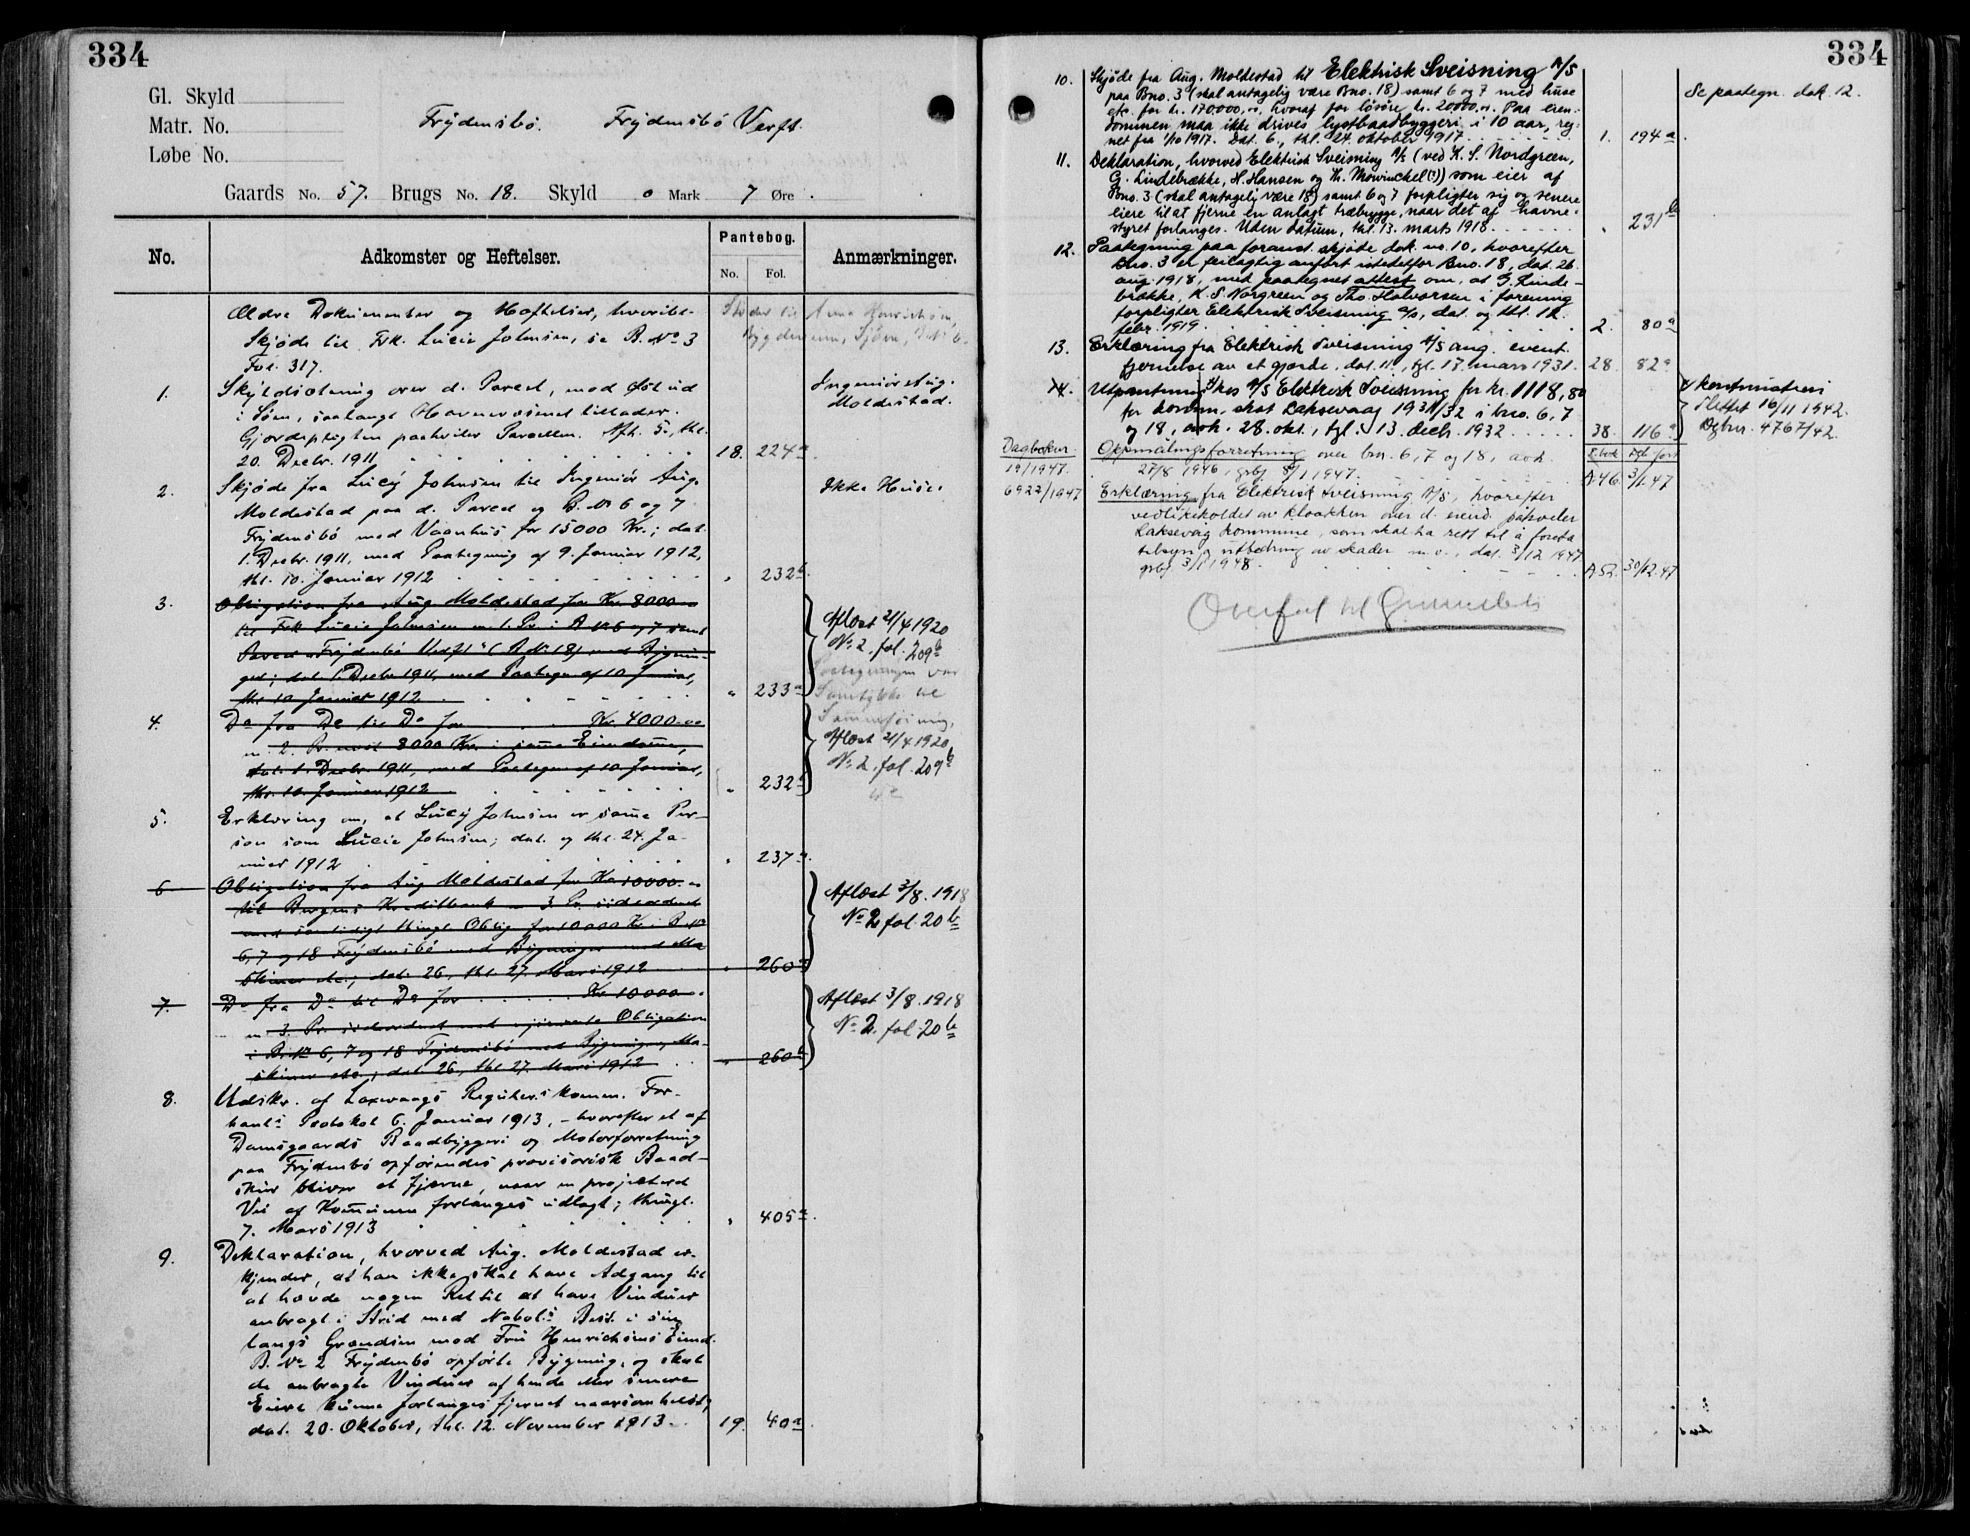 334
Gl. Skyld
Matr. No.
Løbe No.
Frydensbø. Frydensbø Verft.
Gaards No. 57. Brugs No. 18. Skyld 0 Mark 7 Øre
No. Adkomster og Heftelser. Pantebog. No. Fol. Anmærkninger.
Ældre Dokumenter og Heftelser, hveribl.
Skjøde til Frk. Lucie Johnsen, se B. No 3
Fol. 317.
1. Skyldsætning over d. Parcel, med Øst ud
i Søen, saalangt Havnevæsenet tillader.
Gjerdepligten paahviler Parcellen. Afh. 5., thl.
20. Decbr. 1911 18. 224a
Ingeniør Aug.
Moldestad.
2. Skjøde fra Lucij Johnsen til Ingeniør Aug.
Moldestad paa d. Parcel og B. No 6 og 7
Frydensbø med Vaanhus for 15000 Kr.; dat.
1. Decbr. 1911, med Paategning af 9. Januar 1912,
thl. 10. Januar 1912 " 232b
Ikke Huse
3. Obligation fra Aug Moldestad for Kr. 8000
til Frk Lucie Johnsen m. 1. Pr. i B No 6 og 7 samt
Parcel "Frydensbø Verft" (B No 18) med Bygnin-
ger; dat. 1. Decbr. 1911, med Paategn af 10 Januar,
thl. 10 Januar 1912 " 233a
Aflæst 21/4 1920
No 2. fol. 209b
4. Do fra Do til Do for Kr. 4000.00
m. 2. Pr. næst 8000 Kr. i samme Eiendomme,
dat. 1. Decbr. 1911, med Paategn af 10 Januar,
thl. 10. Januar 1912 " 232b
Aflæst 21/4 1920
No 2. fol. 209b
5. Erklæring om, at Lucij Johnsen er samme Per-
son som Lucie Johnsen; dat. og thl. 24. Ja-
nuar 1912 " 237a
6 Obligation fra Aug Moldestad for Kr 10000.-
til Bergens Kreditbank m 3. Pr. sideordnet
med samtidigt thingl. Oblig for 10000 Kr i B. No
6, 7 og 18 Frydensbø med Bygninger med Ma
skiner etc.; dat. 26., thl. 27. Mars 1912 " 260a
Aflæst 3/8. 1918
No 2 fol. 20b
7. Do fra Do til Do for Kr 10000
m 3. Pr. sideordnet med Obligation
i B. No 6, 7 og 18 Frydensbø med Bygninger, Ma-
skiner etc.; dat. 26., thl. 27. Mars 1912 " 260b
Aflæst 3/8. 1918
No 2. fol. 20b
8. Udskr. af Laxevaags Reguler.s komm. For-
hand.s Protokol 6. Januar 1913, - hvorefter et af
Damsgaards Baadbyggeri og Motorforretning
paa Frydensbø opførendes provisorisk Baad-
skur bliver at fjerne, naar en projekteret
Vei af Kommunen forlanges udlagt; thingl.
7. Mars 1913 " 405a
9. Deklaration, hvorved Aug. Moldestad er-
kjender, at han ikke skal have Adgang til
at hævde nogen Ret til at have Vinduer
anbragt i Strid med Nabol.s Best. i sin
langs Grændsen mod Fru Henrichsens Eiend.
B. No 2 Frydensbø opførte Bygning, og skal
de anbragte Vinduer af hende eller senere
Eiere kunne forlanges fjernet naarsomhelst;
dat. 20. Oktober, thl. 12. November 1913. 19. 40a
334
10. Skjøde fra Aug. Moldestad til Elektrisk Sveisning A/S
paa Bno. 3 (skal antagelig være Bno. 18) samt 6 og 7 med huse
etc. for kr. 170000,00, hvoraf for løsøre kr. 20000.00. Paa eien-
dommen maa ikke drives lystbaadbyggeri i 10 aar, reg-
net fra 1/10 1917. Dat. 6., thl. 24. oktober 1917 1. 194a
Se paategn. dok. 12.
11. Deklaration, hvorved Elektrisk Sveisning A/S (ved K. S. Nordgreen,
G. Lindebrække, H. Hansen og Th. Mowinckel(?)) som eier af
Bno. 3 (skal antagelig være 18) samt 6 og 7 forpligter sig og senere
eiere til at fjerne en anlagt træbrygge, naar det af havne-
styret forlanges. Uden datum, thl. 13. marts 1918 " 231b
12. Paategning paa foranst. skjøde dok. no. 10, hvorefter
Bno. 3 er feilagtig anført istedetfor Bno. 18, dat. 26.
aug. 1918, med paategnet attest om, at G. Linde-
brække, K. S. Norgreen og Tho. Halvorsen i forening
forpligter Elektrisk Sveisning A/S, dat. og thl. 12.
febr. 1919 2. 80a
13. Erklæring fra Elektrisk Sveisning A/S ang. event.
fjernelse av et gjærde, dat. 11., tgl. 17. mars 1931. 28. 82a
14. Utpantning hos A/S Elektrisk Sveisning for kr. 1118,80
for komm. skat Laksevaag 1931/32 i bno. 6, 7
og 18, avh. 28. okt., tgl. 13. decb. 1932 38. 116a
Slettet 16/11 1942.
Dgbnr. 4767/42.
Dagboknr.
19/1947. Oppmålingsforretning over bnr. 6, 7 og 18, avh.
27/8 1946, grbf 8/1 1947. A.46. 3/1.47
6922/1947 Erklæring fra Elektrisk Sveisning A/S, hvorefter
vedlikeholdet av kloakken over d. eiend. påhviler
Laksevåg kommune, som skal ha rett til å foreta
tilsyn og utbedring av skader m.v., dat. 3/12 1947
grbf 3/1 1948. A.52. 30/12.47
Overført til Grunnboks